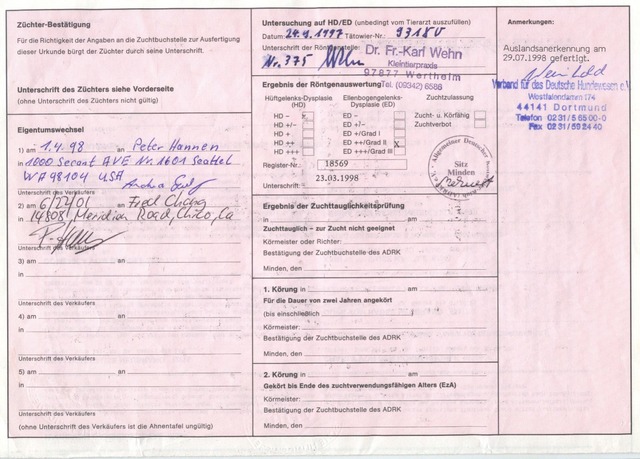 Züchter-Bestätigung
Für die Richtigkeit der Angaben an die Zuchtbuchstelle zur Ausfertigung
dieser Urkunde bürgt der Züchter durch seine Unterschrift.
Unterschrift des Züchters siehe Vorderseite
(ohne Unterschrift des Züchters nicht gültig)
Eigentumswechsel
1) am 1.4.98 an Peter Hannen
in 1000 Secant AVE Nr. 1601 Seattel
WA 98104 USA
Unterschrift des Verkäufers
2) am 6/22/01 an Fred Chang
in 14808 Meridian Road, Chico, Ca
Unterschrift des Verkäufers
3) am an
in
Unterschrift des Verkäufers
4) am an
in
Unterschrift des Verkäufers
5) am an
in
Unterschrift des Verkäufers
(ohne Unterschrift des Verkäufers ist die Ahnentafel ungültig)
Untersuchung auf HD/ED (unbedingt vom Tierarzt auszufüllen)
Datum: 24.9.1997 Tätowier-Nr.: 93180
Unterschrift der Röntgenstelle:
Nr. 375
Dr. Fr.-Karl Wehn
Kleintierpraxis
97877 Wertheim
Tel. (09342) 6588
Ergebnis der Röntgenauswertung
Hüftgelenks-Dysplasie (HD) Ellenbogengelenks-Dysplasie (ED) Zuchtzulassung
HD – ED – Zucht- u. Körfähig
HD +/– ED +/– Zuchtverbot
HD + ED +/Grad I
HD ++ ED ++/Grad II X
HD +++ ED +++/Grad III
Register-Nr.: 18569
23.03.1998
Unterschrift:
Allgemeiner Deutscher
Sitz
Minden
Ergebnis der Zuchttauglichkeitsprüfung
Zuchttauglich – zur Zucht nicht geeignet
Körmeister oder Richter:
Bestätigung der Zuchtbuchstelle des ADRK
Minden, den
1. Körung in am
Für die Dauer von zwei Jahren angekört
(bis einschließlich )
Körmeister:
Bestätigung der Zuchtbuchstelle des ADRK
Minden, den
2. Körung in am
Gekört bis Ende des zuchtverwendungsfähigen Alters (EzA)
Körmeister:
Bestätigung der Zuchtbuchstelle des ADRK
Minden, den
Anmerkungen:
Auslandsanerkennung am
29.07.1998 gefertigt.
Verband für das Deutsche Hundewesen e.V.
Westfalendamm 174
44141 Dortmund
Telefon 02 31/5 65 00-0
Fax 02 31/59 24 40